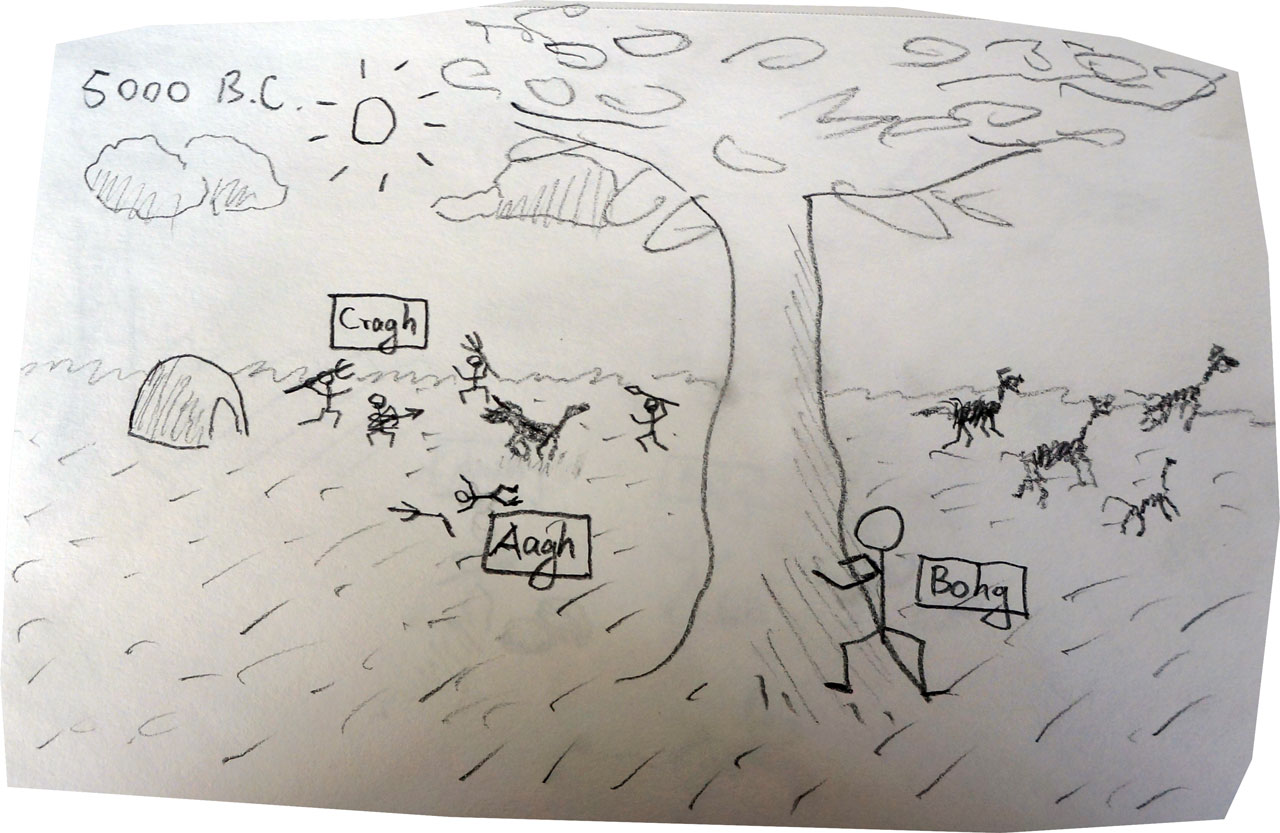 5000 B.C.
Cragh
Aagh
Bohg